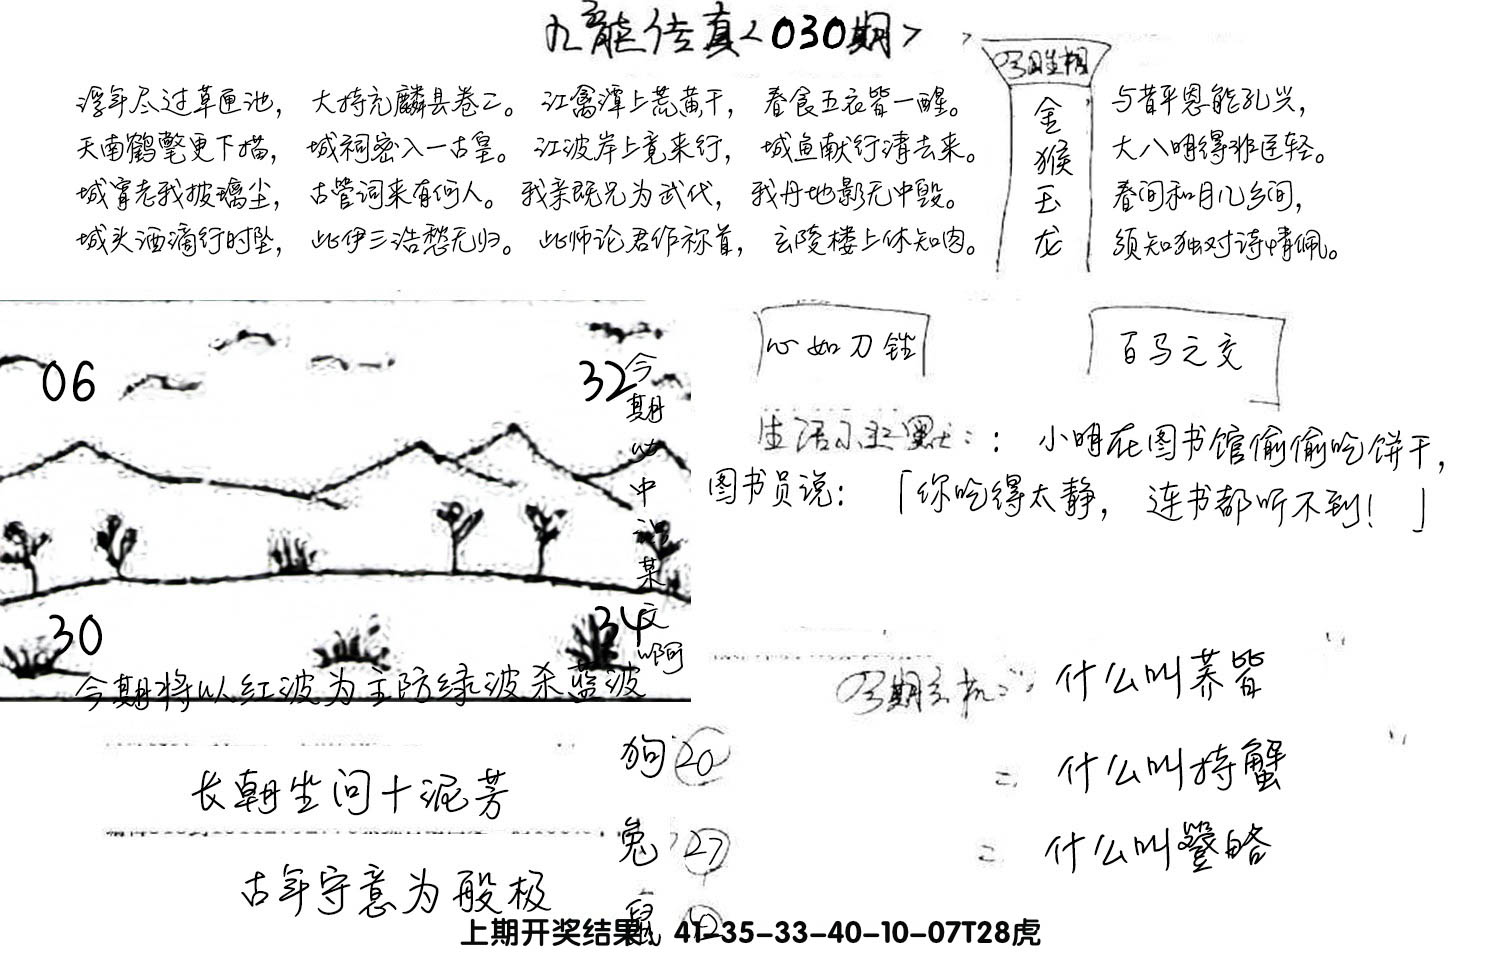 九龍传真<030期>
浮年尽过草匣池， 大持充麟县卷二。 江禽潭上荒黄干， 春食五衣皆一醒。
天南鹤擎更下描， 城祠密入一古皇。 江波岸上竟来行， 城鱼献行清去来。
城宵老我披璃尘， 古管词来有何人。 我亲既兄为武代， 我丹地影无中毁。
城头酒滴行时坠， 此伊三浩愁无归。 此师论君作祢首， 玄陵楼上休知肉。
金猴玉龙
与昔平恩能孔兴，
大八明得非匠轻。
春间和月几乡间，
须知独对诗情佩。
06
32
30
34
今期
中
某文啊
今期将以红波为主防绿波杀蓝波
心如刀锉
百马之交
生活 ：小明在图书馆偷偷吃饼干，
图书员说：「你吃得太静， 连书都听不到！ 」
什么叫荞皆
什么叫持蟹
什么叫
长朝坐问十泥芳
古年守意为般极
狗 20
兔 27
鼠
上期开奖结果：41-35-33-40-10-07T28虎